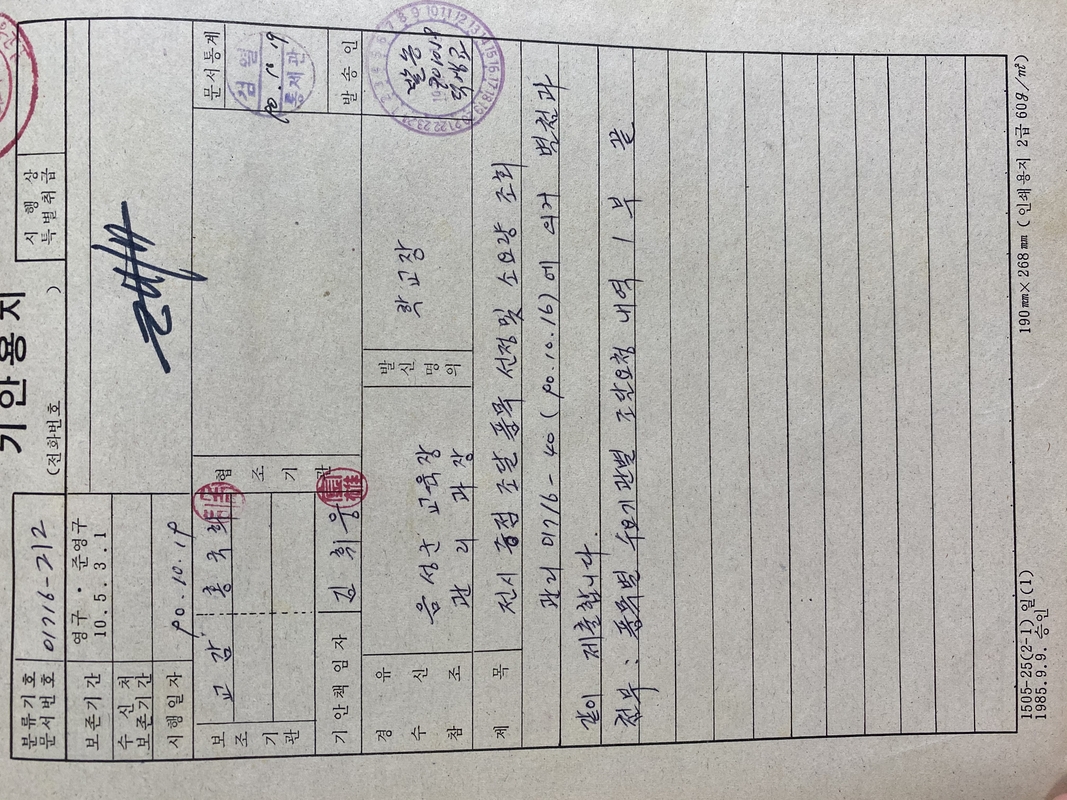 기안용지
분류기호
문서번호
01716-212
(전화번호 )
시 행 상
특별취급
보존기간
영구 · 준영구
10. 5. 3. 1
수 신 처
보존기간
시행일자
90. 10. 19
보 조 기 관
교 감
홍
협 조 기 관
문서통계
검 열
90. 10. 19
통 제 관
기안책임자
김 휘 웅
발 송 인
발 송
경 유
수 신
참 조
음성군 교육장
관 리 과 장
발 신 명 의
학 교 장
제 목
전시 중점 조달 품목 선정 및 소요량 조회
관리 01716-40 (90.10.16)에 의거 별첨과
같이 제출합니다.
첨부 : 품목별 수요기관별 조달요청 내역 1부 끝
1505-25(2-1) 일(1)
1985. 9. 9. 승인
190㎜×268㎜ (인쇄용지 2급 60g/㎡)